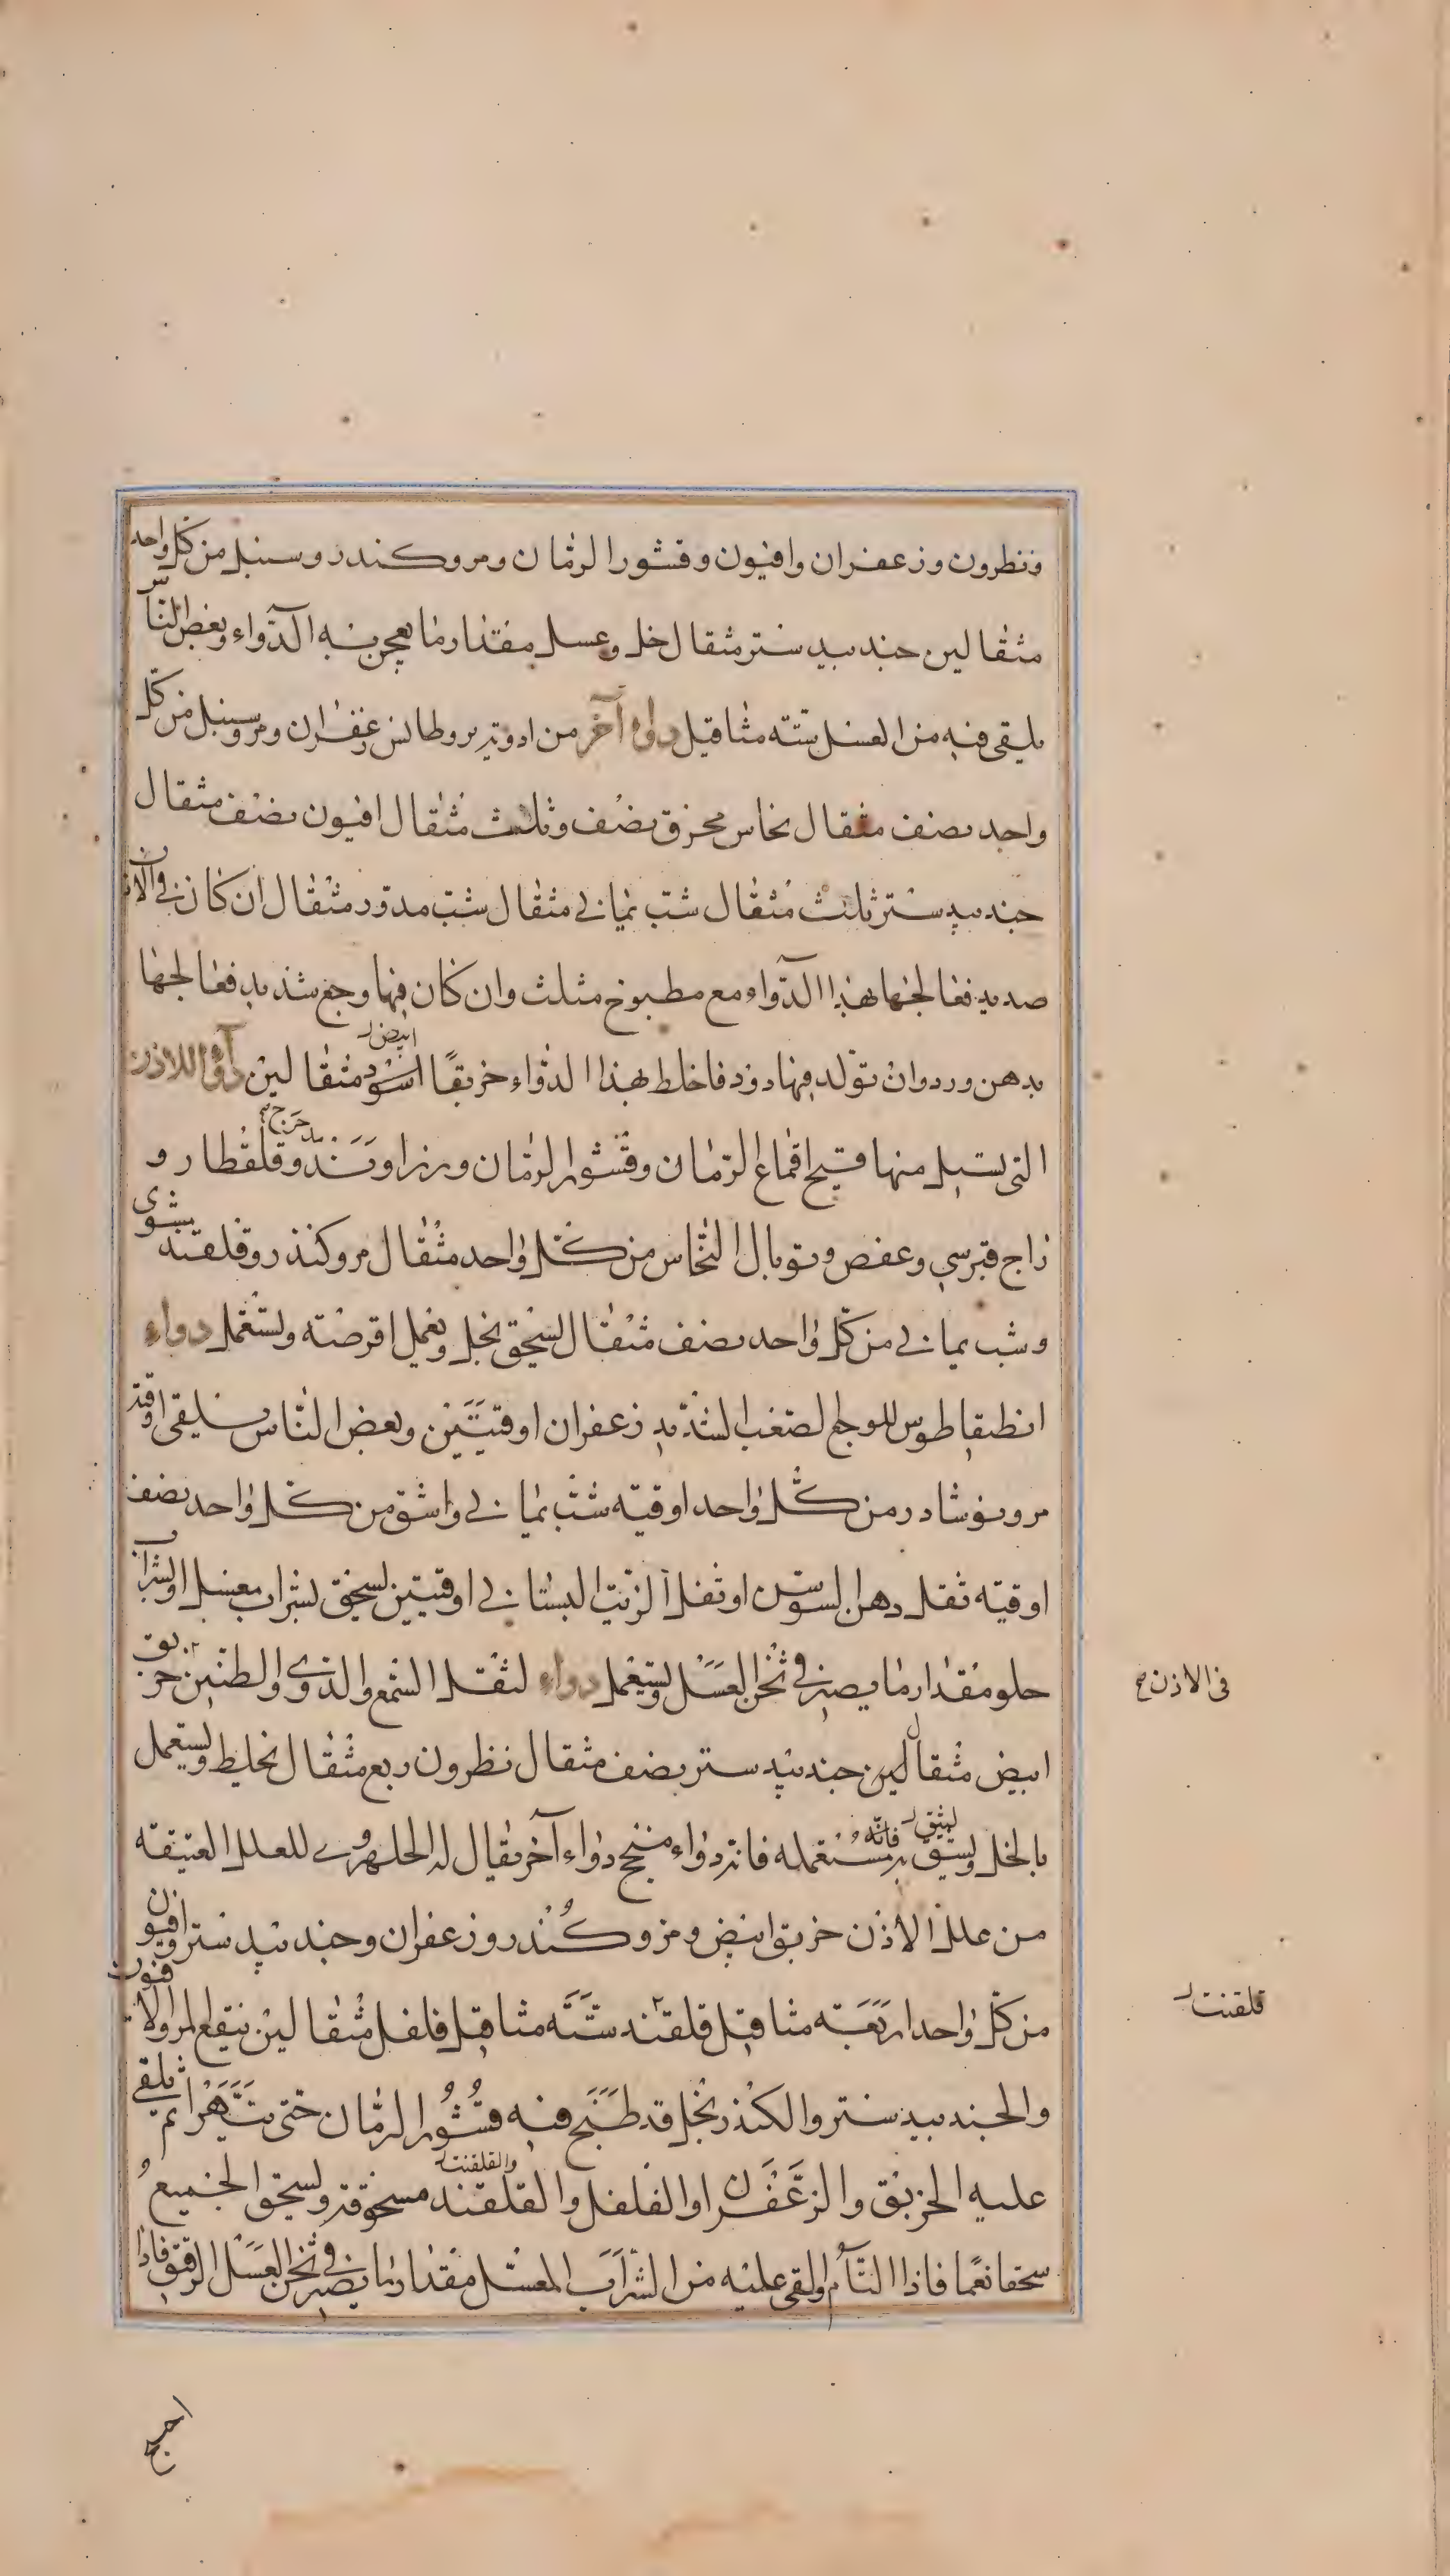 ونطرون وزعفران وافيون وقشور الرمان ومر وكندر وسنبل من كل واحد
مثقالين جندبيدستر مثقال خل وعسل مقدار ما يعجن به الدواء وبعض الناس
يلقى فيه من العسل ستة مثاقيل دواء آخر من ادوية بروطانس زعفران ومر وسنبل من كل
واحد نصف مثقال نحاس محرق نصف وثلث مثقال افيون نصف مثقال
جندبيدستر ثلث مثقال شب يماني مثقال شب مدور مثقال ان كان في الاذن
صديد فعالجها بهذا الدواء مع مطبوخ مثلث وان كان فيها وجع شديد فعالجها
ابيض
بدهن ورد وان تولد فيها دود فاخلط بهذا الدواء خربقا اسود مثقالين دواء للاذن
التي يسيل منها قيح اقماع الرمان وقشور الرمان وزراوند مدحرج وقلقطار و
زاج قبرسي وعفص وتوبال النحاس من كل واحد مثقال مر وكندر وقلقند يشوى
وشب يماني من كل واحد نصف مثقال يسحق بخل ويعمل اقرصة ويستعمل دواء
انطيقاطوس للوجع الصعب الشديد زعفران اوقيتين وبعض الناس يلقى اوقية
مر ونوشادر من كل واحد اوقية شب يماني واشق من كل واحد نصف
اوقية ثفل دهن السوسن او ثفل الزيت البستاني اوقيتين يسحق بشراب معسل او بشراب
حلو مقدار ما يصير في ثخن العسل ويستعمل دواء لثقل السمع والدوي والطنين خربق
في الاذن
ابيض مثقالين جندبيدستر نصف مثقال نطرون ربع مثقال يخلط ويستعمل
ليثق فانه
بالخل وليثق به مستعمله فانه دواء منجح دواء آخر يقال له الحلهروى للعلل العتيقة
من علل الاذن خربق ابيض ومر وكندر وزعفران وجندبيدستر وافيون
من كل واحد اربعة مثاقيل قلقند ستة مثاقيل فلفل مثقالين ينقع المر والافيون
قلقنت
والجندبيدستر والكندر بخل قد طبخ فيه قشور الرمان حتى يتهرا ثم يلقى
والقلقنت
عليه الخربق والزعفران والفلفل والقلقند مسحوقة ويسحق الجميع
سحقا نعما فاذا التأم القى عليه من الشراب المعسل مقدار ما يصير في ثخن العسل الرقيق فاذا